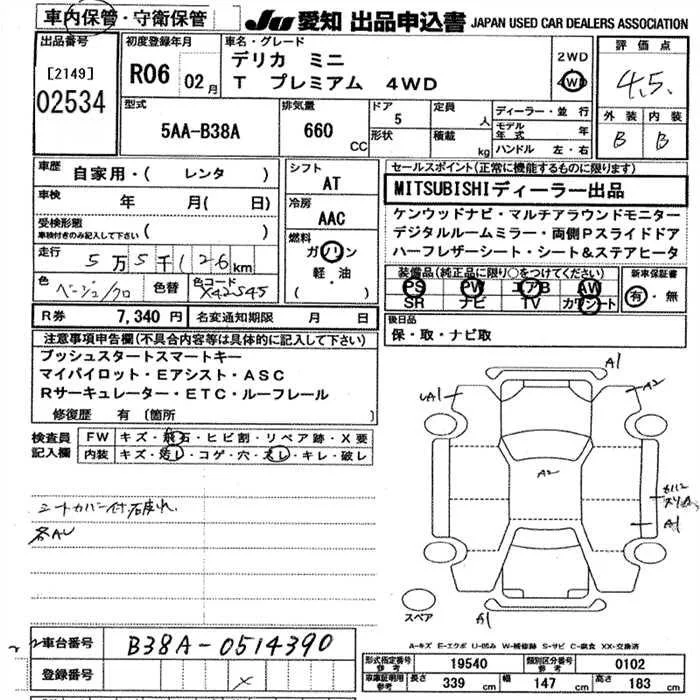 車内保管・守衛保管
JU 愛知 出品申込書 JAPAN USED CAR DEALERS ASSOCIATION
出品番号
[2149]
02534
初度登録年月
R06 02月
車名・グレード
デリカ ミニ
T プレミアム 4WD
2WD
4WD
評価点
4.5.
外装 内装
B B
型式
5AA-B38A
排気量
660 CC
ドア
5
形状
定員
人
積載
kg
ディーラー・並行
モデル年式 年
ハンドル 左・右
車歴
自家用・( レンタ )
車検
年 月( 日)
受検形態
車検付きのみ記入して下さい ( )
走行
5万5千126km
色
ベージュ/クロ
色替
色コード
X42545
シフト
AT
冷房
AAC
燃料
ガソリン
軽・油
( )
セールスポイント(正常に機能するものに限ります)
MITSUBISHIディーラー出品
ケンウッドナビ・マルチアラウンドモニター
デジタルルームミラー・両側Pスライドドア
ハーフレザーシート・シート&ステアヒータ
装備品(純正品に限り○をつけてください)
PS PW エアB AW
SR ナビ TV カワシート
新車保証書
有・無
R券 7,340 円 名変通知期限 月 日
後日品
保・取・ナビ取
注意事項申告欄(不具合内容等は具体的に記入して下さい)
プッシュスタートスマートキー
マイパイロット・Eアシスト・ASC
Rサーキュレーター・ETC・ルーフレール
修復歴 有 [箇所 ]
検査員記入欄
FW キズ・飛石・ヒビ割・リペア跡・X要
内装 キズ・汚レ・コゲ・穴・スレ・キレ・破レ
シートカバー付
各AU
A1
A2
UA1
A2
A1
A1
スペア
A-キズ E-エクボ U-凹み W-補修跡 S-サビ C-腐食 XX-交換済
車台番号 B38A-0514390
登録番号
型式指定番号参考 19540 類別区分番号参考 0102
車庫証明用参考 長さ 339 cm 幅 147 cm 高さ 183 cm